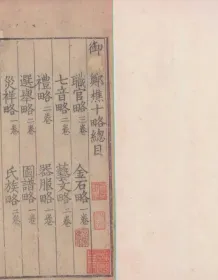 御
鄭樵十略總目
職官略 卷 金石略一卷
七音略二卷 藝文略 卷
禮略二卷 器服略 卷
選舉略二卷 圖譜略一卷
災祥略一卷 氏族略 卷